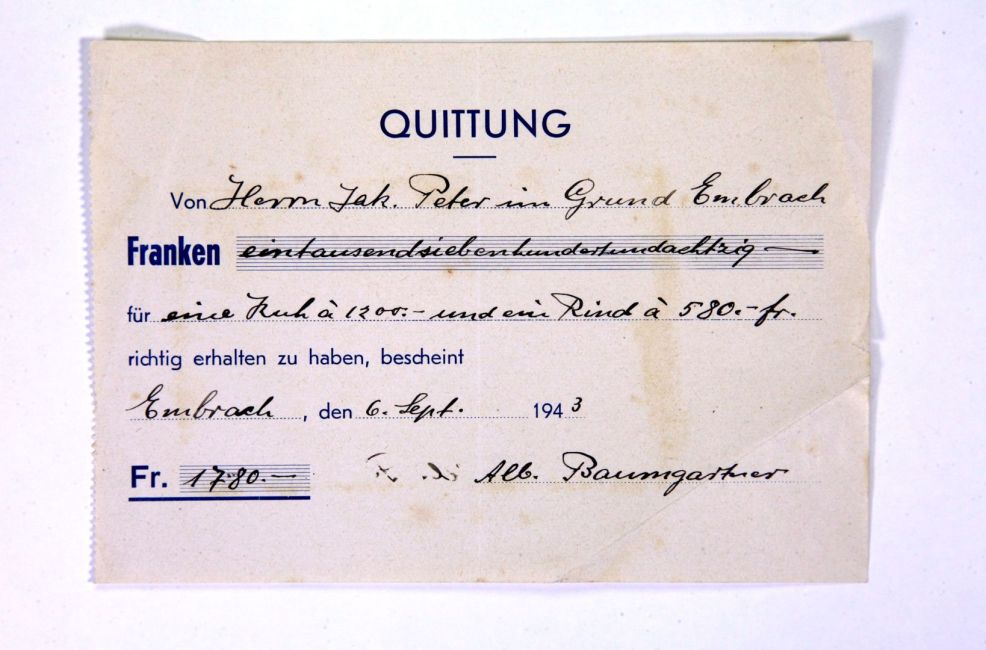 QUITTUNG
Von Herrn Jak. Peter im Grund Embrach
Franken eintausendsiebenhundertundachtzig —
für eine Kuh à 1200.- und ein Rind à 580.- fr.
richtig erhalten zu haben, bescheint
Embrach, den 6. Sept. 1943
Fr. 1780.— Alb. Baumgartner